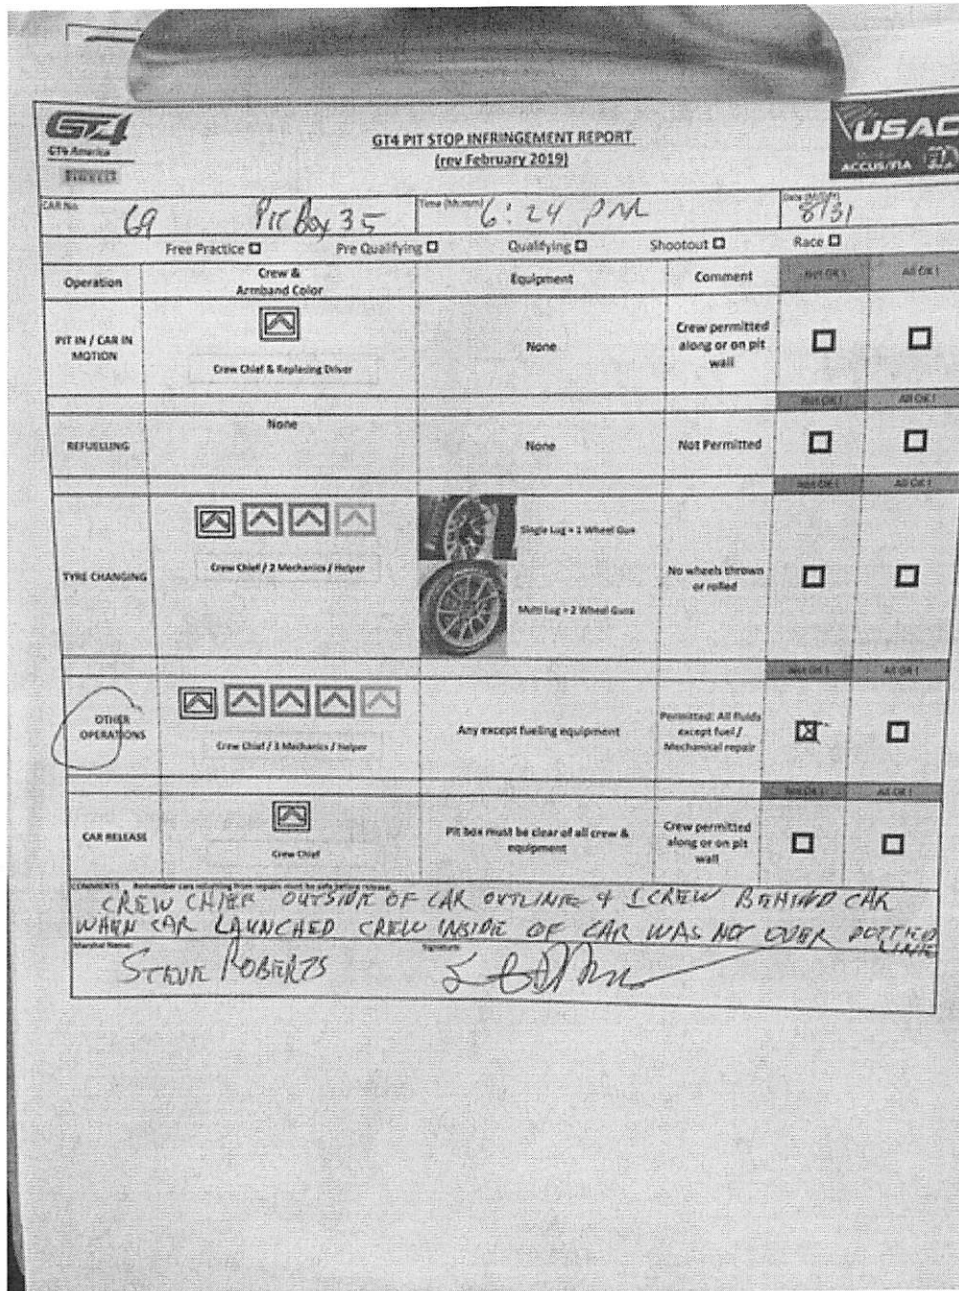 GT4
GT4 America
PIRELLI
GT4 PIT STOP INFRINGEMENT REPORT
(rev February 2019)
USAC
ACCUS/FIA
CAR No. 69 Pit Box 35 Time (hh:mm) 6:24 PM 8/31
Free Practice Pre Qualifying Qualifying Shootout Race
Operation Crew & Armband Color Equipment Comment Not OK ! All OK !
PIT IN / CAR IN MOTION
Crew Chief & Replacing Driver
None
Crew permitted along or on pit wall
Not OK ! All OK !
REFUELLING None None Not Permitted
Not OK ! All OK !
TYRE CHANGING
Crew Chief / 2 Mechanics / Helper
Single Lug = 1 Wheel Gun
Multi Lug = 2 Wheel Guns
No wheels thrown or rolled
Not OK ! All OK !
OTHER OPERATIONS
Crew Chief / 3 Mechanics / Helper
Any except fueling equipment
Permitted: All fluids except fuel / Mechanical repair
Not OK ! All OK !
CAR RELEASE
Crew Chief
Pit box must be clear of all crew & equipment
Crew permitted along or on pit wall
COMMENTS Remember cars returning from repairs must be safe before release.
CREW CHIEF OUTSIDE OF CAR OUTLINE & 1 CREW BEHIND CAR
WHEN CAR LAUNCHED CREW INSIDE OF CAR WAS NOT OVER DOTTED
LINE
Marshal Name: Signature:
STEVE ROBERTS